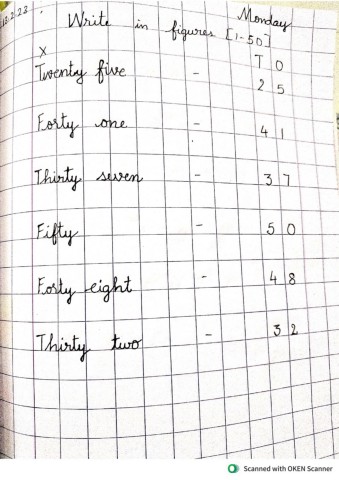 Monday
Write in figures [1-50]
x T O
Twenty five - 2 5
Forty one - 4 1
Thirty seven - 3 7
Fifty - 5 0
Forty eight - 4 8
Thirty two - 3 2
Scanned with OKEN Scanner